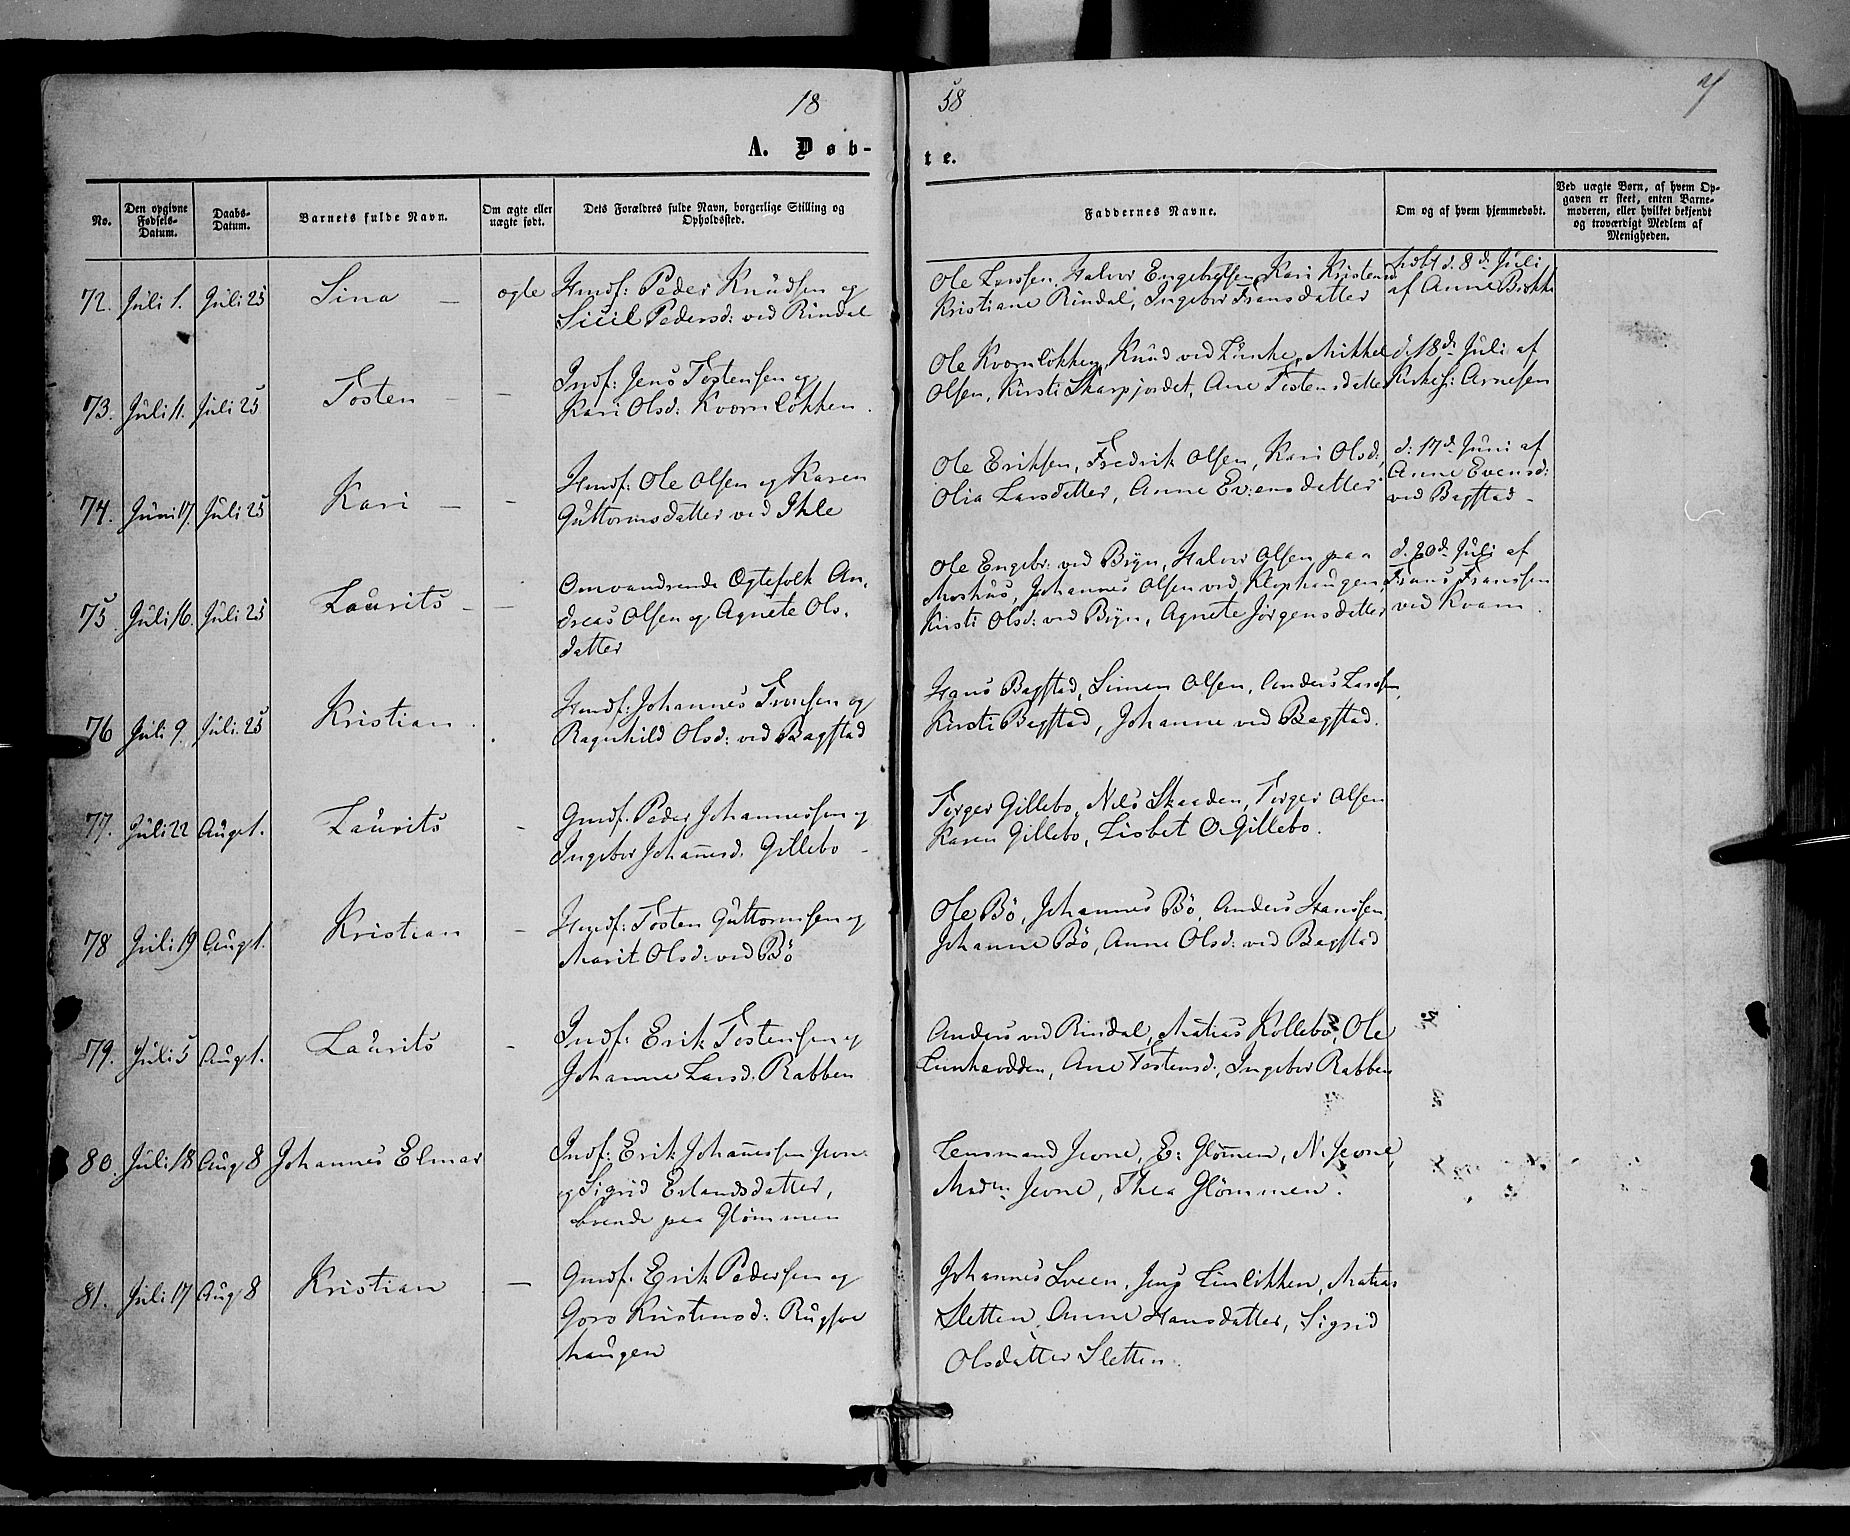 18
58
A. Døb-
te.
No.
Den opgivne Fødsels-Datum.
Daabs-Datum.
Barnets fulde Navn.
Om ægte eller uægte født.
Dets Forældres fulde Navn, borgerlige Stilling og Opholdssted.
Faddernes Navne.
Om og af hvem hjemmedøbt.
Ved uægte Børn, af hvem Op-
gaven er skeet, enten Barne-
moderen, eller hvilket bekjendt
og troværdigt Medlem af
Menigheden.
72. Juli 1. Juli 25 Sina — ægte Hmdf: Peder Knudsen og
Sicil Pedersd: ved Rindal
Ole Larssen, Halvor Engebretsen, Kari Kristensd
Kristiane Rindal, Ingebor Fransdatter
hdbt d. 8d Juli
af Anne Bakke
73. Juli 11. Juli 25 Tosten — — Indf: Jens Tostensen og
Kari Olsd: Kvornløkken.
Ole Kvornløkken, Knud ved Lunke, Mikkel
Olsen, Kirsti Skarpjordet, Ane Tostensdatter
d. 18d Juli af
Kirkes: Arnesen
74. Juni 17. Juli 25 Kari — — Hmdf: Ole Olsen og Karen
Guttormsdatter ved Ihle
Ole Eriksen, Fredrik Olsen, Kari Olsd,
Olia Larsdatter, Anne Evensdatter
d: 17d Juni af
Anne Evensd:
ved Bagstad –
75. Juli 16. Juli 25 Laurits – — Omvandrende Ægtefolk An-
dreas Olsen og Agnete Ols-
datter
Ole Engebr: ved Byn, Halvor Olsen paa
Moshus, Johannes Olsen ved Klophaugen,
Kirsti Olsd: ved Byn, Agnete Jørgensdatter
d. 20d Juli af
Frans Franssen
ved Kvam.
76 Juli 9. Juli 25 Kristian. Hmdf: Johannes Iversen og
Ragnhild Olsd: ved Bagstad
Hans Bagstad, Simen Olsen, Anders Larssen,
Kirsti Bagstad, Johanne ved Bagstad.
77. Juli 22 Aug 1. Laurits – Gmdf. Peder Johannessen og
Ingebor Johannesd. Gillebo –
Torger Gillebo, Nils Skaaden, Torger Olsen
Karen Gillebo, Lisbet O. Gillebo.
78 Juli 19 Aug 1. Kristian – Hmdf: Tosten Guttormsen og
Marit Olsd: ved Bö
Ole Bö, Johannes Bö, Anders Hanssen,
Johanne Bö, Anne Olsd: ved Bagstad
79. Juli 5 Aug 1. Laurits – Indf: Erik Tostensen og
Johanne Larsd. Rabben
Anders ved Rindal, Matias Kollebö, Ole
Ane Tostensd:, Ingebor Rabben
80. Juli 18 Aug 8 Johannes Elmar Indf: Erik Johannessen Jevne
og Sigrid Erlandsdatter,
boende paa Glømmen
Lensmand Jevne, E: Glømmen, N. Jevne,
Madm Jevne, Thea Glømmen.
81. Juli 17 Aug 8 Kristian — Gmdf: Erik Pedersen og
Goro Kristensd: Rugsve
haugen
Johannes Sveen, Jens Linløkken, Matias
Sletten, Anne Hansdatter, Sigrid
Olsdatter Sletten.